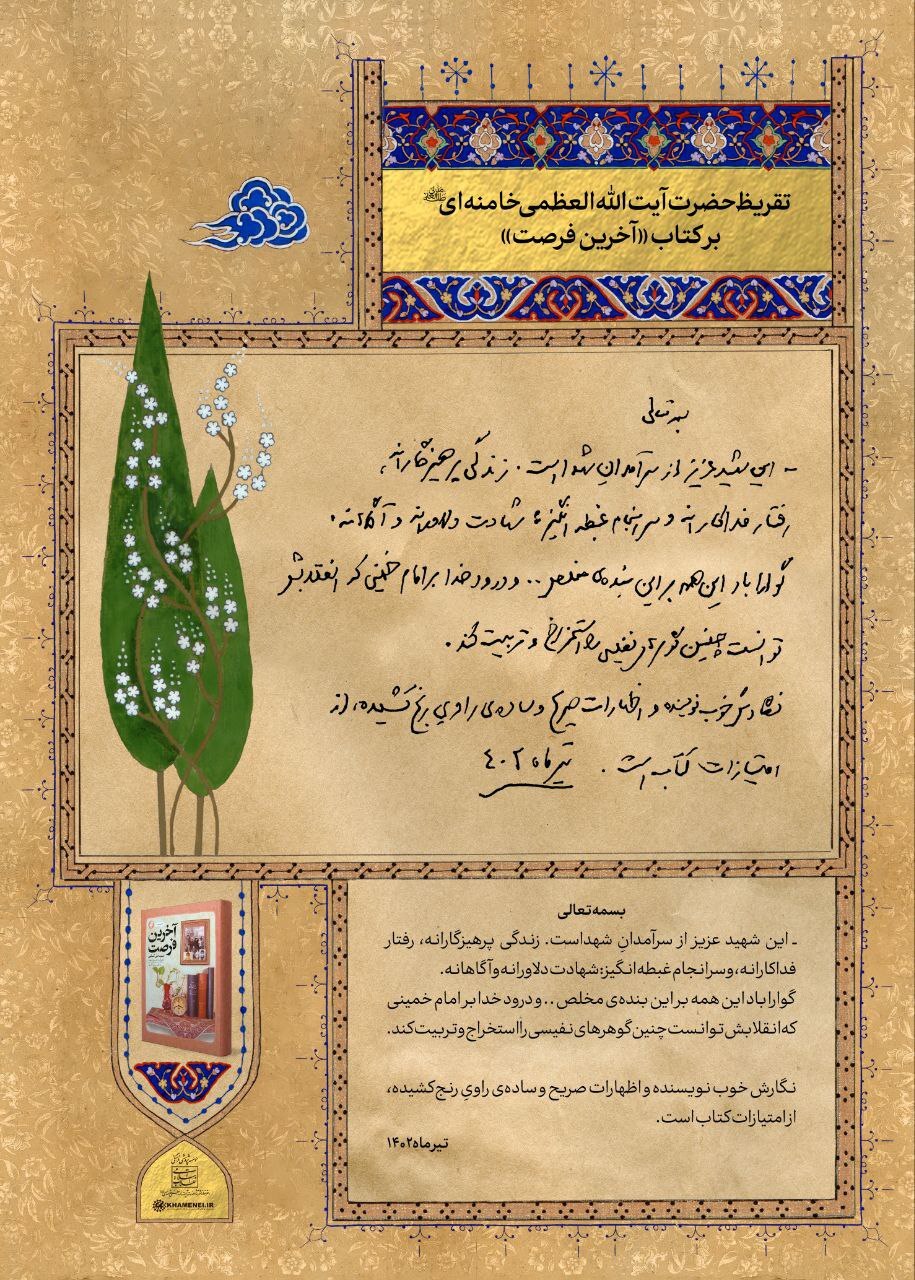 تقریظ حضرت آیت الله العظمی خامنه‌ای
بر کتاب «آخرین فرصت»
بسمه تعالی
- این شهید عزیز از سرآمدان شهدا است. زندگی پرهیزگارانه،
رفتار فداکارانه و سرانجام غبطه انگیز؛ شهادت دلاورانه و آگاهانه.
گوارا باد این همه بر این بنده‌ی مخلص .. و درود خدا بر امام خمینی که انقلابش
توانست چنین گوهرهای نفیسی را استخراج و تربیت کند.
نگارش خوب نویسنده و اظهارات صریح و ساده‌ی راوی رنج کشیده، از
امتیازات کتاب است. تیرماه ۴۰۲
بسمه تعالی
ـ این شهید عزیز از سرآمدانِ شهداست. زندگی پرهیزگارانه، رفتار
فداکارانه، و سرانجام غبطه انگیز: شهادت دلاورانه و آگاهانه.
گوارا باد این همه بر این بنده‌ی مخلص .. و درود خدا بر امام خمینی
که انقلابش توانست چنین گوهرهای نفیسی را استخراج و تربیت کند.
نگارش خوب نویسنده و اظهارات صریح و ساده‌ی راویِ رنج کشیده،
از امتیازات کتاب است.
تیرماه ۱۴۰۲
آخرین
فرصت
KHAMENEI.IR